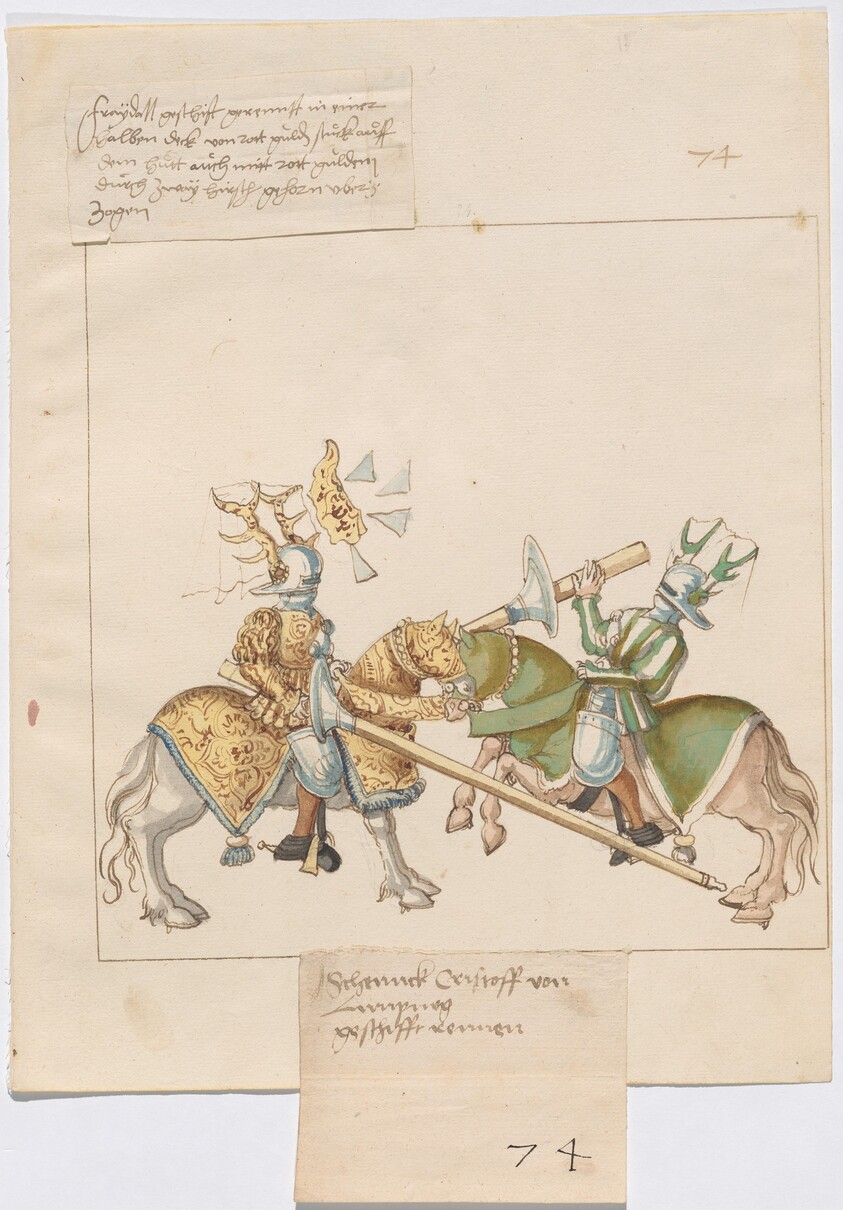 fraydall geschift gerennst in einer
halben deck von rott guld stuck auff
dem hutt auch mitt rott guldem
durch zway hirsch gehorn uber
zogen
74
Schennck Cristoff von
geschifft rennen
74